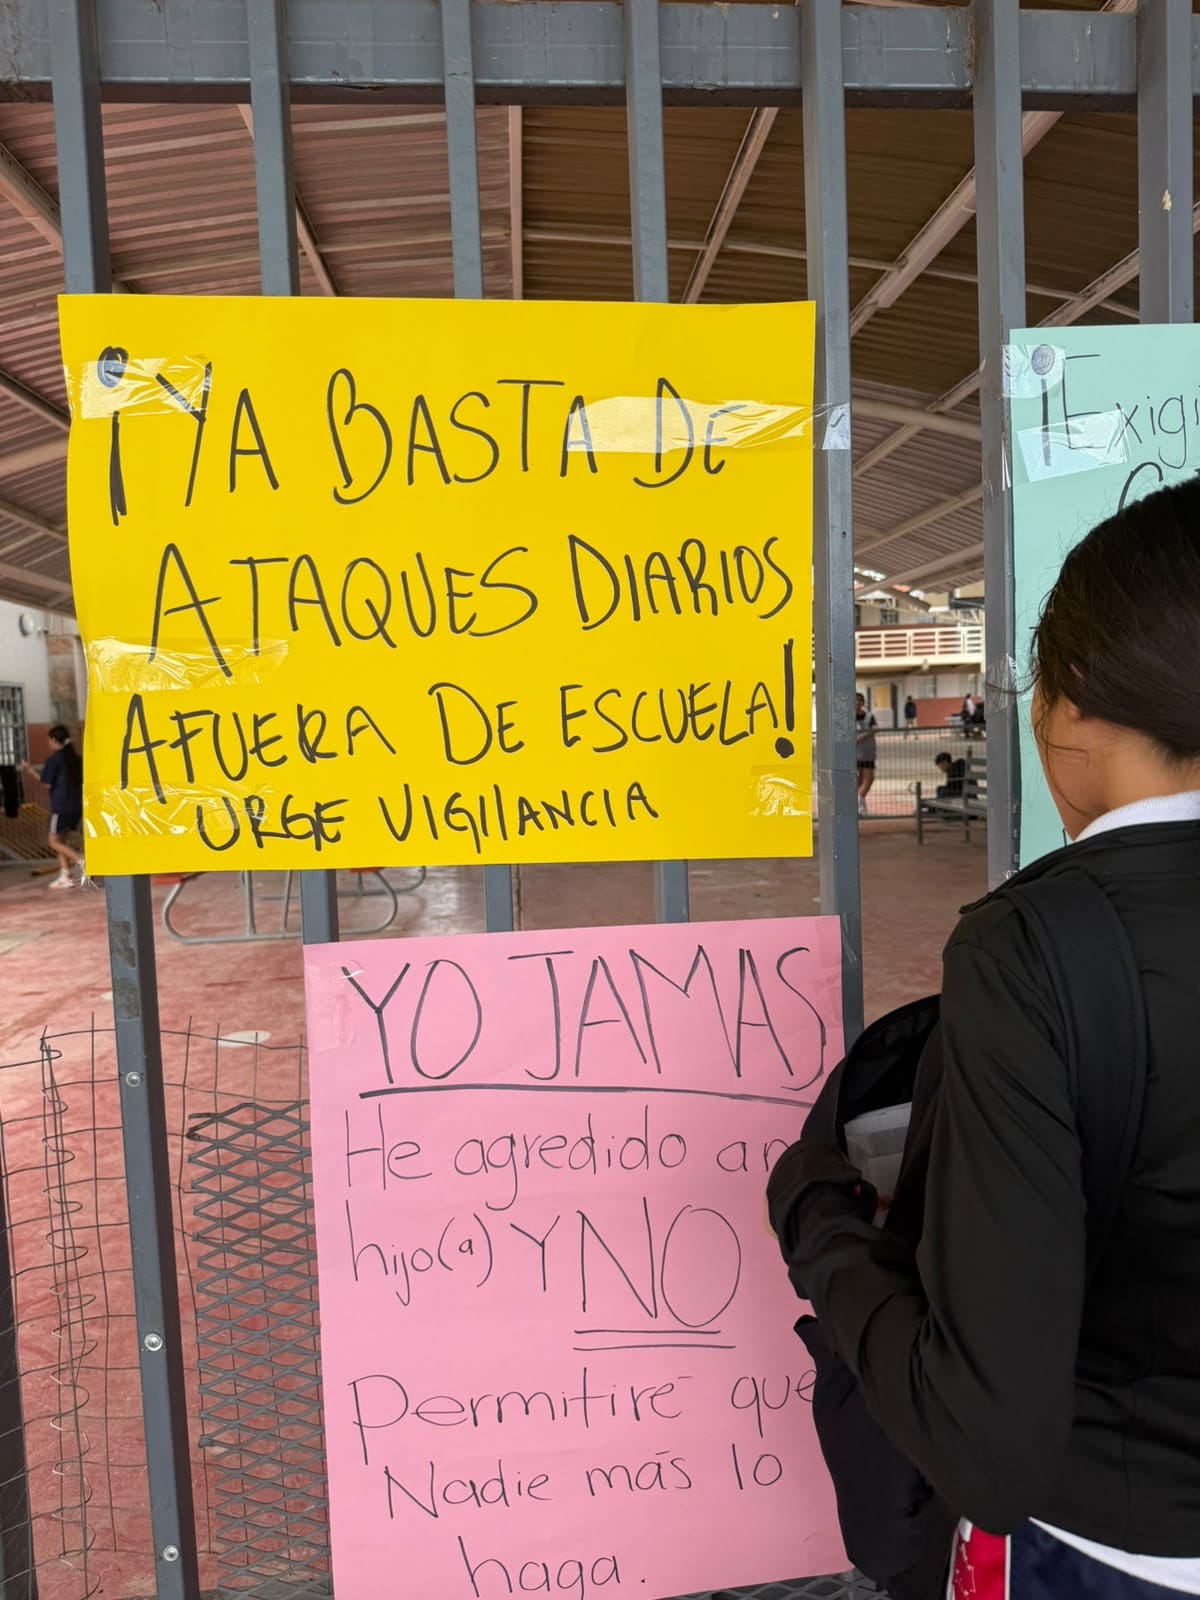 ¡YA BASTA DE
ATAQUES DIARIOS
AFUERA DE ESCUELA!
URGE VIGILANCIA
YO JAMAS
He agredido a
hijo(a) Y NO
Permitiré que
Nadie más lo
haga.